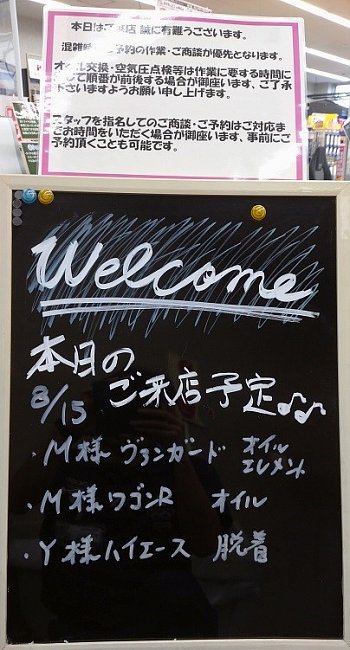 本日はご来店 誠に有難うございます。
混雑時 ご予約の作業・ご商談が優先となります。
オイル交換・空気圧点検等は作業に要する時間に
よって順番が前後する場合が御座います、ご了承
下さいますようお願い申し上げます。
スタッフを指名してのご商談・ご予約はご対応ま
でお時間をいただく場合が御座います、事前にご
予約頂くことも可能です。
Welcome
本日の
8/15 ご来店予定♪♪
・M様 ヴァンガード オイル
エレメント
・M様 ワゴンR オイル
・Y様 ハイエース 脱着